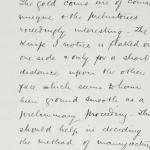 The gold coins are of cours
unique & the prehistories
exceedingly interesting. The
Knife I notice is flaked on
one side & only for a short
distance upon the other
face which seems to have
been ground smooth as a
preliminary proceeding. This
should help in deciding
the method of manufactur